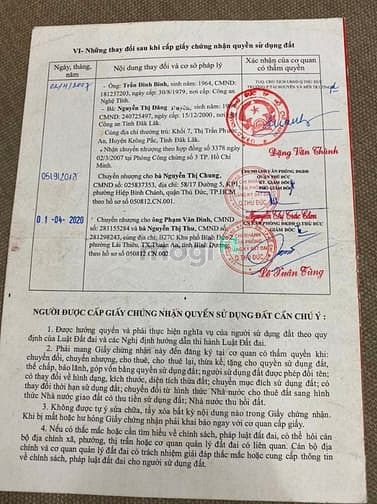 VI- Những thay đổi sau khi cấp giấy chứng nhận quyền sử dụng đất
Ngày, tháng, năm
Nội dung thay đổi và cơ sở pháp lý
Xác nhận của cơ quan có thẩm quyền
- Ông: Trần Đình Bình, sinh năm: 1964, CMND:
181237203, cấp ngày: 30/8/1979, nơi cấp: Công an
Nghệ Tĩnh.
- Bà: Nguyễn Thị Đăng
CMND: 240725497, cấp ngày: 15/12/2000, nơi cấp:
Công an Tỉnh Đăk Lăk.
Cùng địa chỉ thường trú: Khối 7, Thị Trấn Phước
An, Huyện Krông Pắc, Tỉnh Đăk Lăk.
- Nhận chuyển nhượng theo hợp đồng số 3378 ngày
02/3/2007 tại Phòng Công chứng số 3 TP. Hồ Chí
Minh.
Đặng Văn Thành
Chuyển nhượng cho bà Nguyễn Thị Chung;
CMND số: 025837353; địa chỉ: 58/17 Đường 5, KP1
phường Hiệp Bình Chánh, quận Thủ Đức, TP.HCM
theo hồ sơ số 050812.CN.001.
01-04-2020
- Chuyển nhượng cho ông Phạm Văn Dinh, CMND
số: 281155284 và bà Nguyễn Thị Thu, CMND số:
281298243, cùng địa chỉ: B27C Khu phố Bình Đức
phường Lái Thiêu, TX.Thuận An, tỉnh Bình Dương
theo hồ sơ số 050812.CN.002
Lê Tuấn Tùng
NGƯỜI ĐƯỢC CẤP GIẤY CHỨNG NHẬN QUYỀN SỬ DỤNG ĐẤT CẦN CHÚ Ý :
1. Được hưởng quyền và phải thực hiện nghĩa vụ của người sử dụng đất theo quy
định của Luật Đất đai và các Nghị định hướng dẫn thi hành Luật Đất đai.
2. Phải mang Giấy chứng nhận này đến đăng ký tại cơ quan có thẩm quyền khi:
chuyển đổi, chuyển nhượng, cho thuê, cho thuê lại, thừa kế, tặng cho quyền sử dụng đất,
thế chấp, bảo lãnh, góp vốn bằng quyền sử dụng đất; người sử dụng đất được phép đổi tên;
có thay đổi về hình dạng, kích thước, diện tích thửa đất; chuyển mục đích sử dụng đất; có
thay đổi thời hạn sử dụng đất; chuyển đổi từ hình thức Nhà nước cho thuê đất sang hình
thức Nhà nước giao đất có thu tiền sử dụng đất; Nhà nước thu hồi đất.
3. Không được tự ý sửa chữa, tẩy xóa bất kỳ nội dung nào trong Giấy chứng nhận.
Khi bị mất hoặc hư hỏng Giấy chứng nhận phải khai báo ngay với cơ quan cấp giấy.
4. Nếu có thắc mắc hoặc cần tìm hiểu về chính sách, pháp luật đất đai, có thể hỏi cán
bộ địa chính xã, phường, thị trấn hoặc cơ quan quản lý đất đai có liên quan. Cán bộ địa
chính và cơ quan quản lý đất đai có trách nhiệm giải đáp thắc mắc hoặc cung cấp thông tin
về chính sách, pháp luật đất đai cho người sử dụng đất.